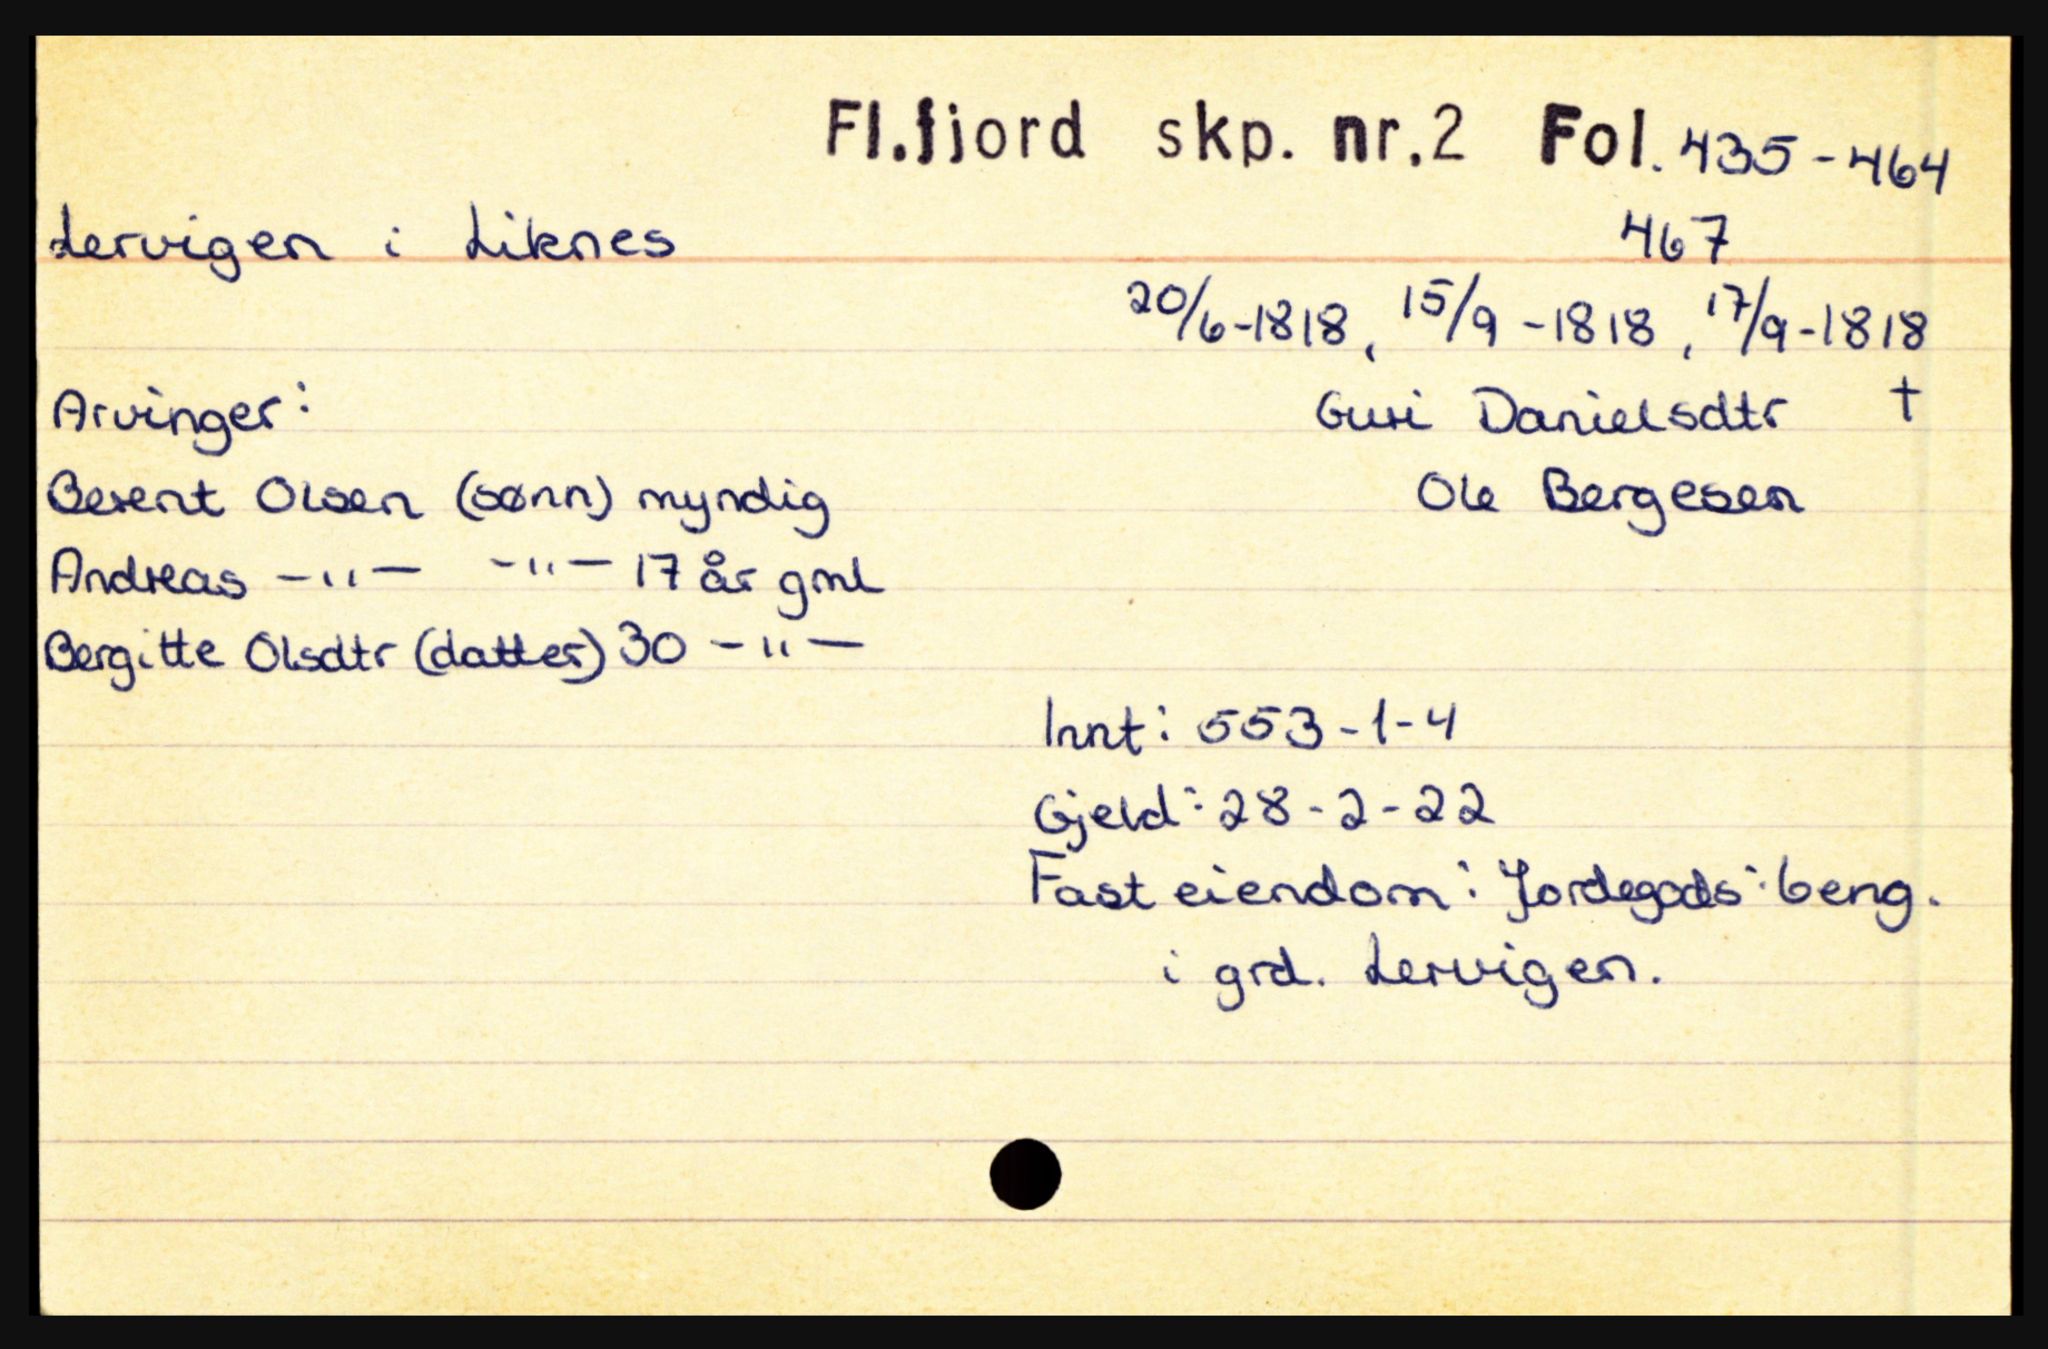 Fl.fjord skp. nr.2 Fol. 435-464
467
Lervigen i Liknes
20/6-1818, 15/9-1818, 17/9-1818
Guri Danielsdtr †
Ole Bergesen
Arvinger:
Berent Olsen (sønn) myndig
Andreas -"- -"- 17 år gml
Bergitte Olsdtr (datter) 30 -"-
Innt: 553-1-4
Gjeld: 28-2-22
Fast eiendom: Jordegods: beng.
i grd. Lervigen.